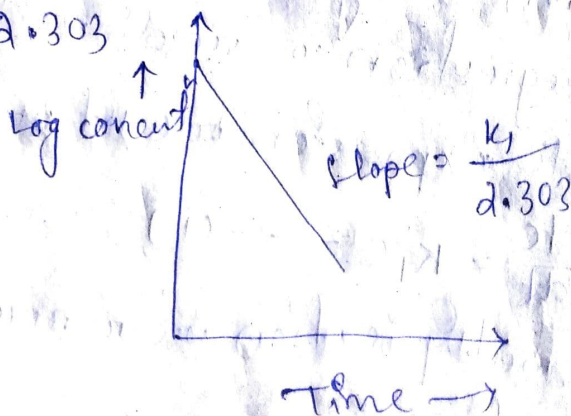 2.303
↑
Log concent
slope = K₁/2.303
Time →